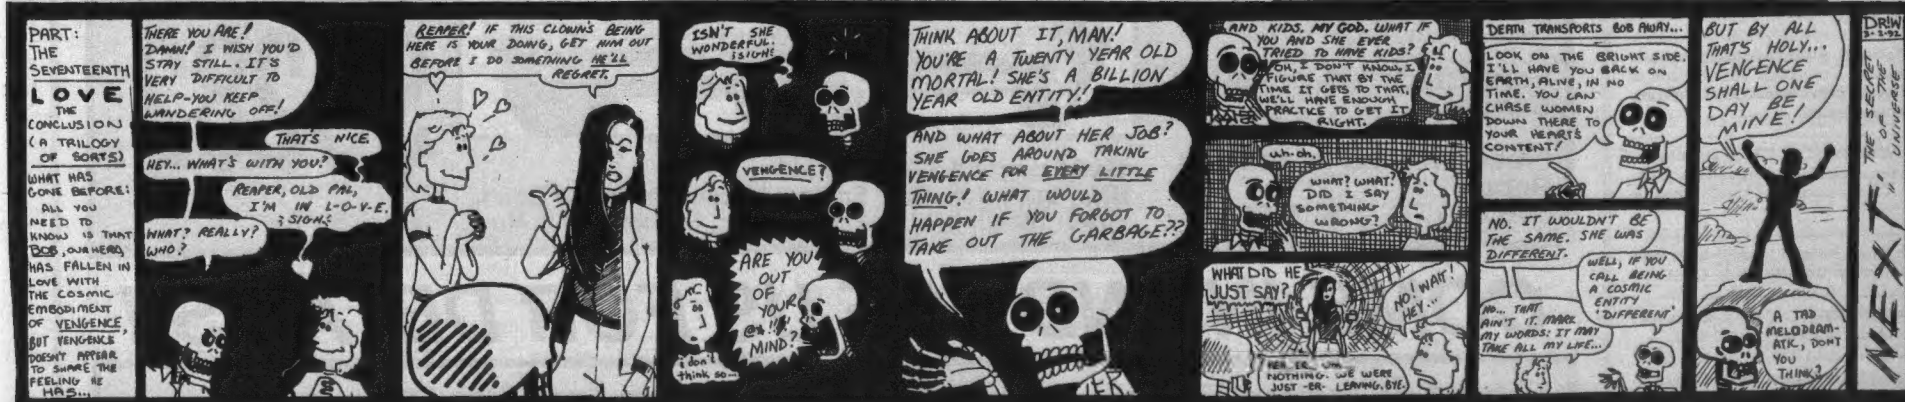 PART:
THE
SEVENTEENTH
LOVE
THE
CONCLUSION
(A TRILOGY
OF SORTS)
WHAT HAS
GONE BEFORE:
ALL YOU
NEED TO
KNOW IS THAT
BOB, OUR HERO,
HAS FALLEN IN
LOVE WITH
THE COSMIC
EMBODIMENT
OF VENGENCE,
BUT VENGENCE
DOESN'T APPEAR
TO SHARE THE
FEELING HE
HAS...
THERE YOU ARE!
DAMN! I WISH YOU'D
STAY STILL. IT'S
VERY DIFFICULT TO
HELP-YOU KEEP
WANDERING OFF!
THAT'S NICE.
HEY... WHAT'S WITH YOU?
REAPER, OLD PAL,
I'M IN L-O-V-E.
:SIGH:
WHAT? REALLY?
WHO?
REAPER! IF THIS CLOWN'S BEING
HERE IS YOUR DOING, GET HIM OUT
BEFORE I DO SOMETHING HE'LL
REGRET.
ISN'T SHE
WONDERFUL.
:SIGH:
VENGENCE?
ARE YOU
OUT
OF
YOUR
@*!!#!
MIND?
i don't
think so...
THINK ABOUT IT, MAN!
YOU'RE A TWENTY YEAR OLD
MORTAL! SHE'S A BILLION
YEAR OLD ENTITY!
AND WHAT ABOUT HER JOB?
SHE GOES AROUND TAKING
VENGENCE FOR EVERY LITTLE
THING! WHAT WOULD
HAPPEN IF YOU FORGOT TO
TAKE OUT THE GARBAGE??
AND KIDS. MY GOD. WHAT IF
YOU AND SHE EVER
TRIED TO HAVE KIDS?
OH, I DON'T KNOW. I
FIGURE THAT BY THE
TIME IT GETS TO THAT,
WE'LL HAVE ENOUGH
PRACTICE TO GET IT
RIGHT.
uh-oh.
WHAT? WHAT?
DID I SAY
SOMETHING
WRONG?
WHAT DID HE
JUST SAY?
NO! WAIT!
HEY...
HEH, ER, UM,
NOTHING. WE WERE
JUST -ER- LEAVING. BYE.
DEATH TRANSPORTS BOB AWAY...
LOOK ON THE BRIGHT SIDE.
I'LL HAVE YOU BACK ON
EARTH, ALIVE, IN NO
TIME. YOU CAN
CHASE WOMEN
DOWN THERE TO
YOUR HEART'S
CONTENT!
NO. IT WOULDN'T BE
THE SAME. SHE WAS
DIFFERENT.
WELL, IF YOU
CALL BEING
A COSMIC
ENTITY
'DIFFERENT'
NO... THAT
AIN'T IT. MARK
MY WORDS: IT MAY
TAKE ALL MY LIFE...
BUT BY ALL
THAT'S HOLY...
VENGENCE
SHALL ONE
DAY BE
MINE!
A TAD
MELODRAM-
ATIC, DON'T
YOU
THINK?
NEXT: THE SECRET
OF THE
UNIVERSE